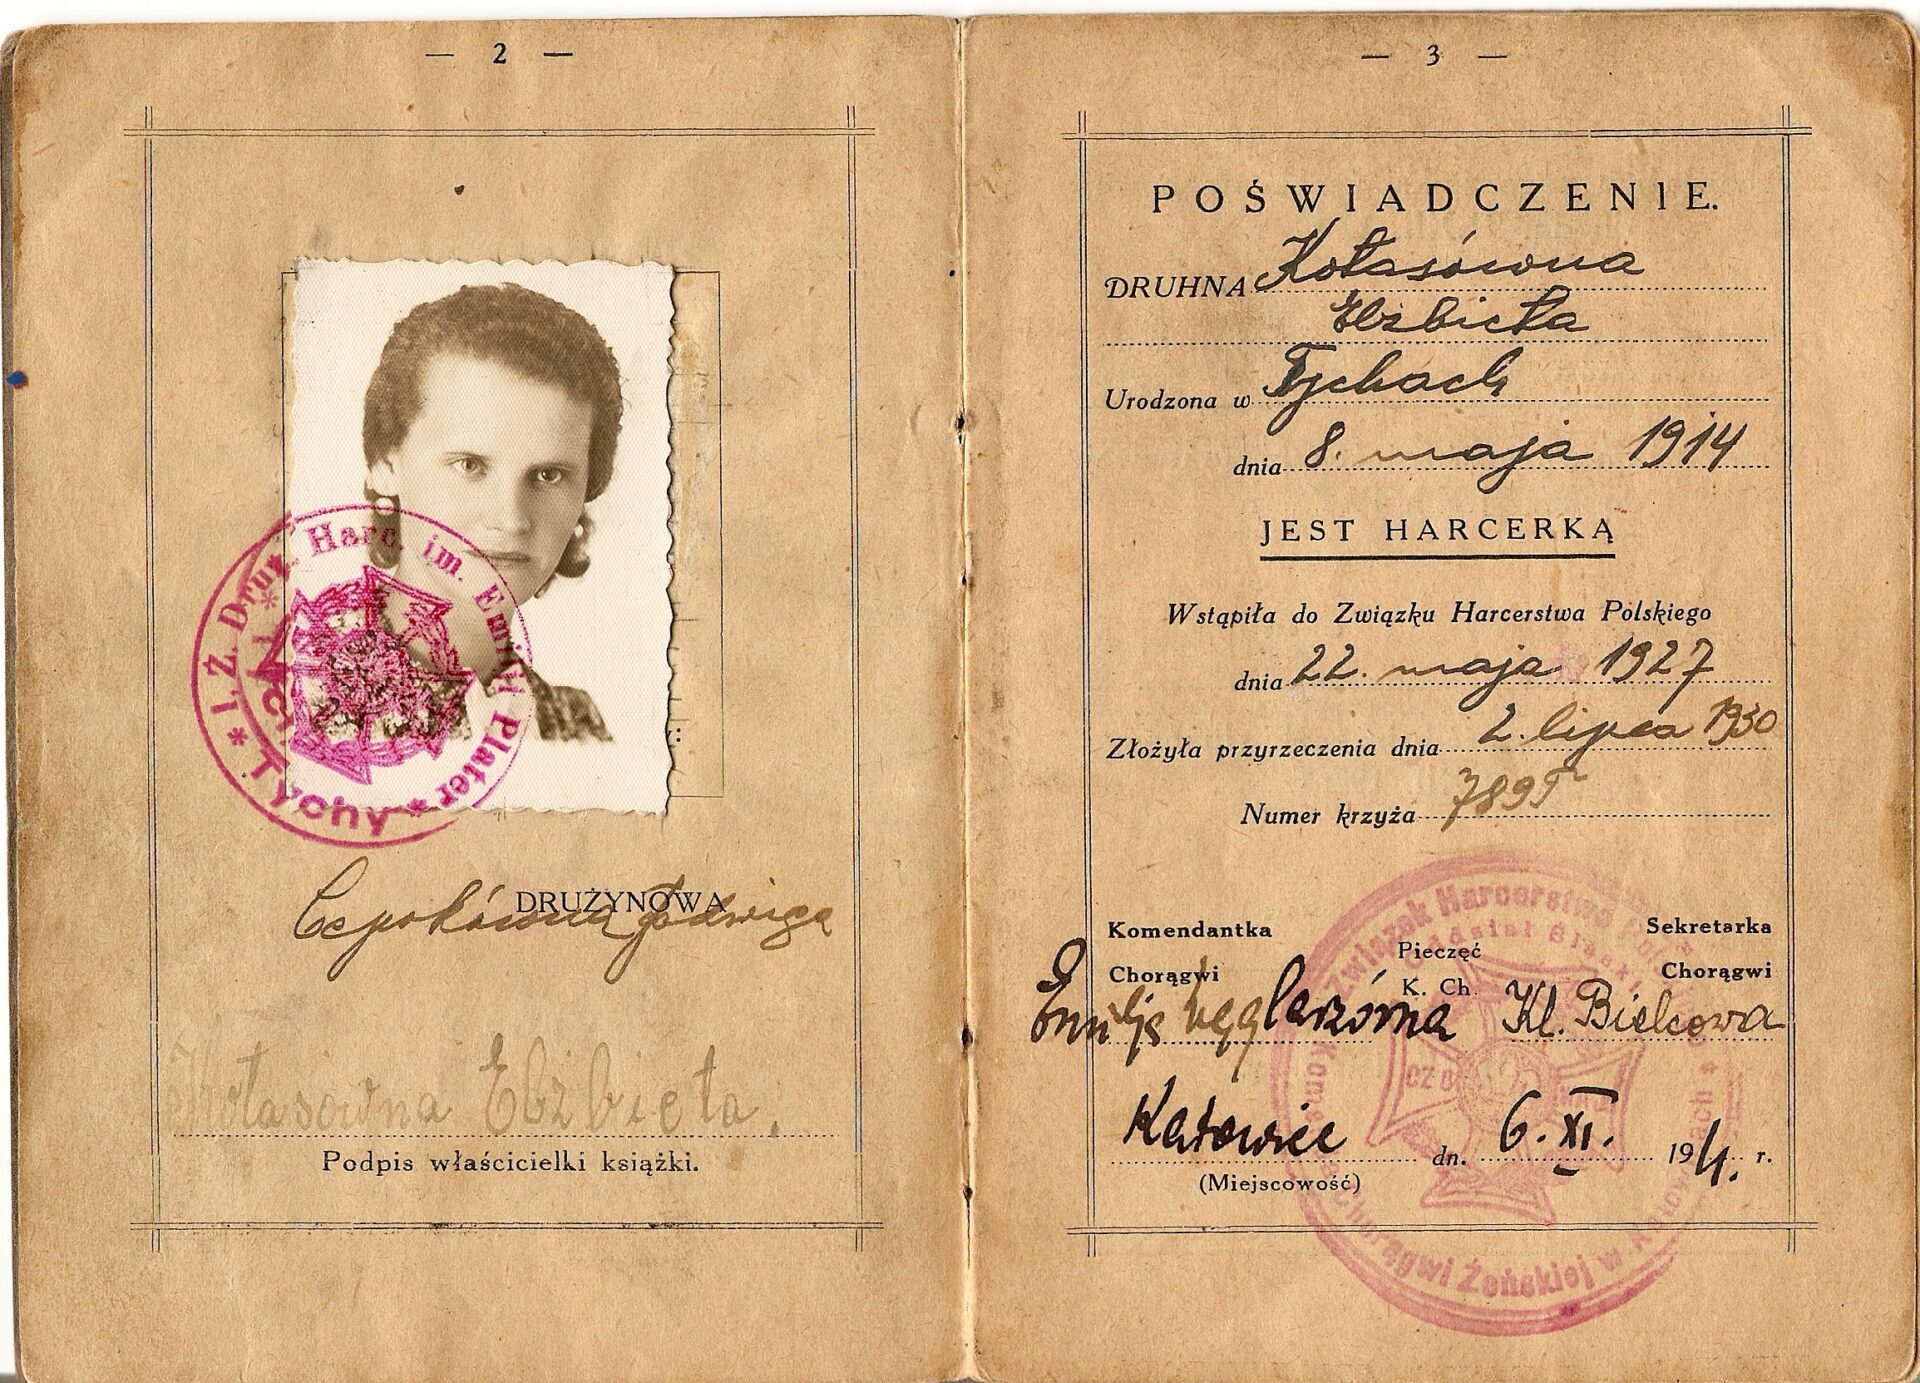 — 2 —
I. Ż. Druż. Harc. im. Emilji Plater
* Tychy *
DRUŻYNOWA
Jadwiga
Kołasówna Elżbieta.
Podpis właścicielki książki.
— 3 —
POŚWIADCZENIE.
DRUHNA Kołasówna
Elżbieta
Urodzona w Tychach
dnia 8. maja 1914
JEST HARCERKĄ
Wstąpiła do Związku Harcerstwa Polskiego
dnia 22. maja 1927
Złożyła przyrzeczenia dnia 2. lipca 1930
Numer krzyża
Komendantka
Chorągwi
Pieczęć
K. Ch.
Sekretarka
Chorągwi
Kl. Bielcowa
Katowice dn. 6. XI. 194 r.
(Miejscowość)
Związek Harcerstwa
Oddział Śląski
Chorągwi Żeńskiej w